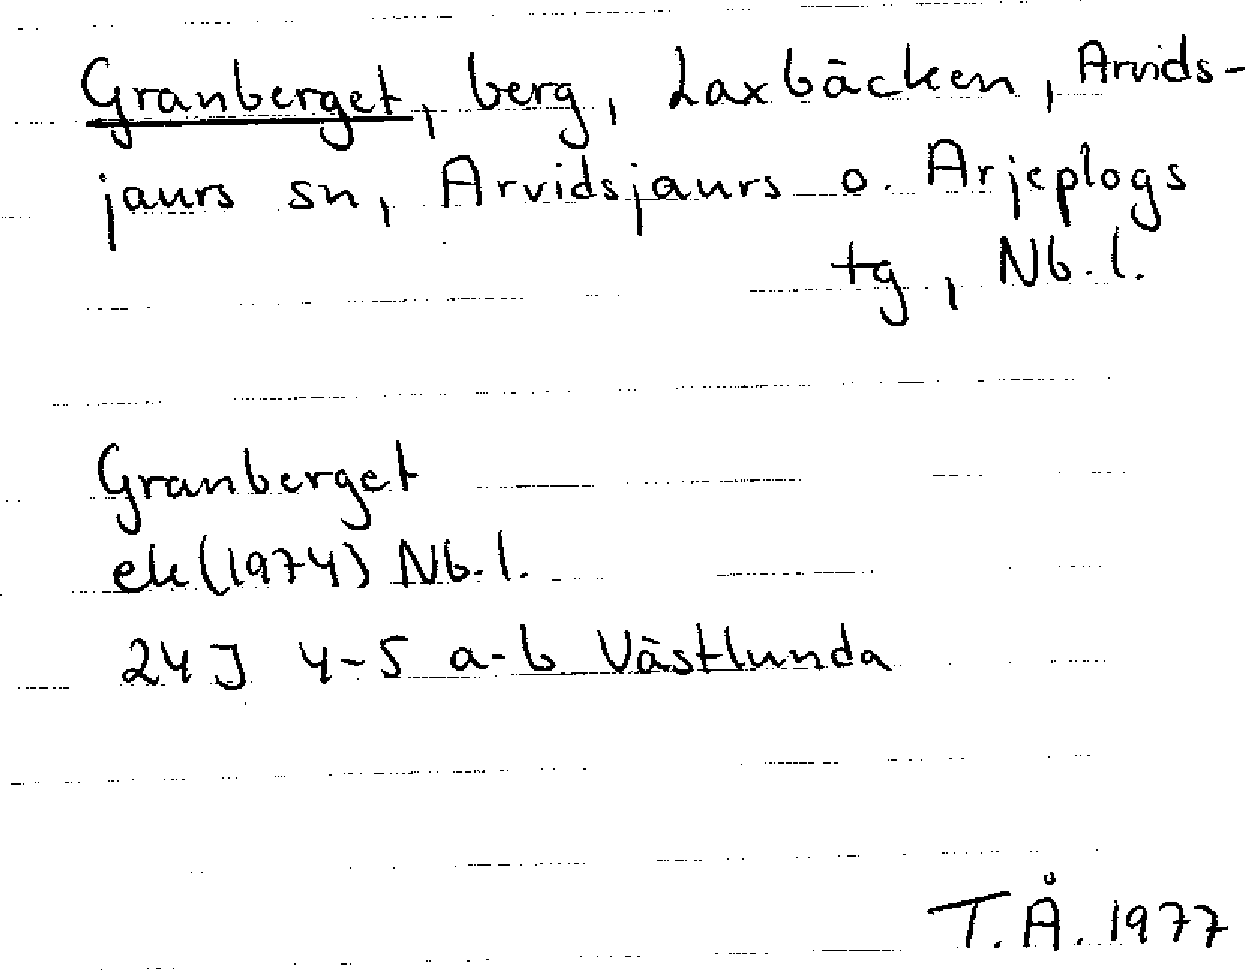 Granberget, berg, Laxbäcken, Arvids-
jaurs sn, Arvidsjaurs o. Arjeplogs
tg, Nb.l.
Granberget
ek (1974) Nb.l.
24J 4-5 a-b Västlunda
T.Å. 1977